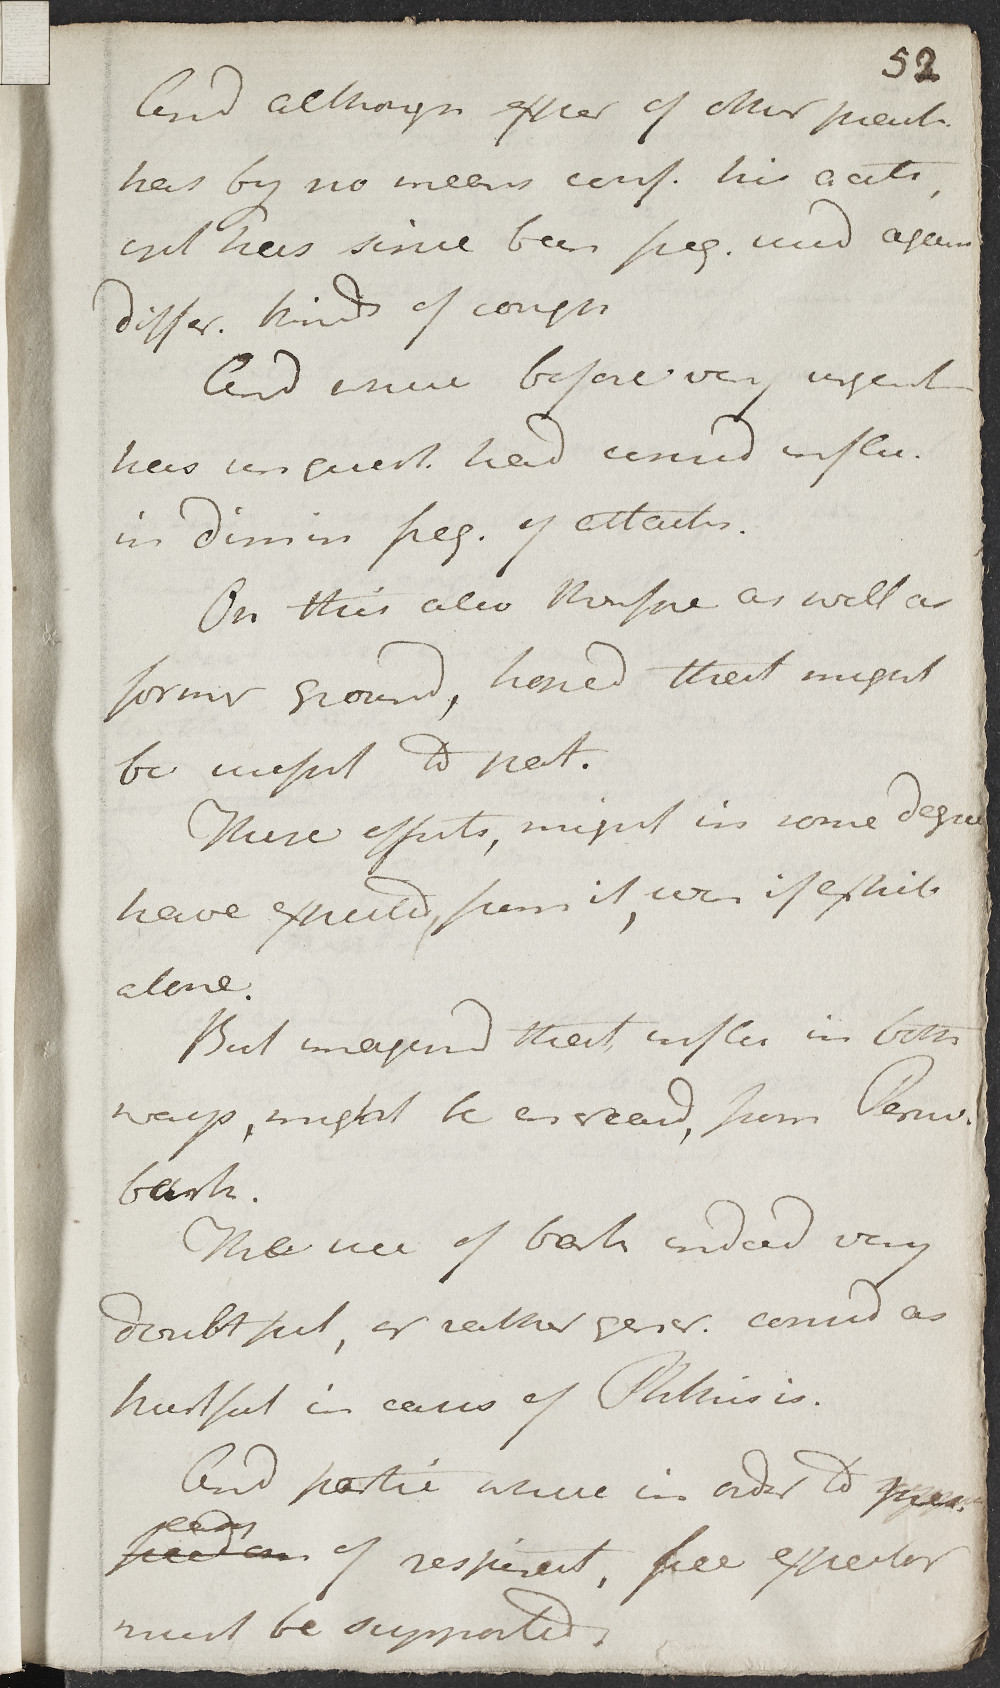 52
And although exper of other pract.
has by no means conf. his accts,
yet has since been freq. used again
differ. kinds of cough
And where before very urgent
has unquest. had consid influ.
in dimin freq. of attacks.
On this also therefore as well as
former ground, hoped that might
be useful to pat.
These effects, might in some degree
have expected, from it, even if exhib
alone.
But imagined that influ in both
ways, might be increasd, from Peruv.
bark.
The use of bark indeed very
doubtful, or rather gener. consid as
hurtful in cases of Phthisis.
And partic where in order to
ease
freedom of respirat, free expector
must be supported,